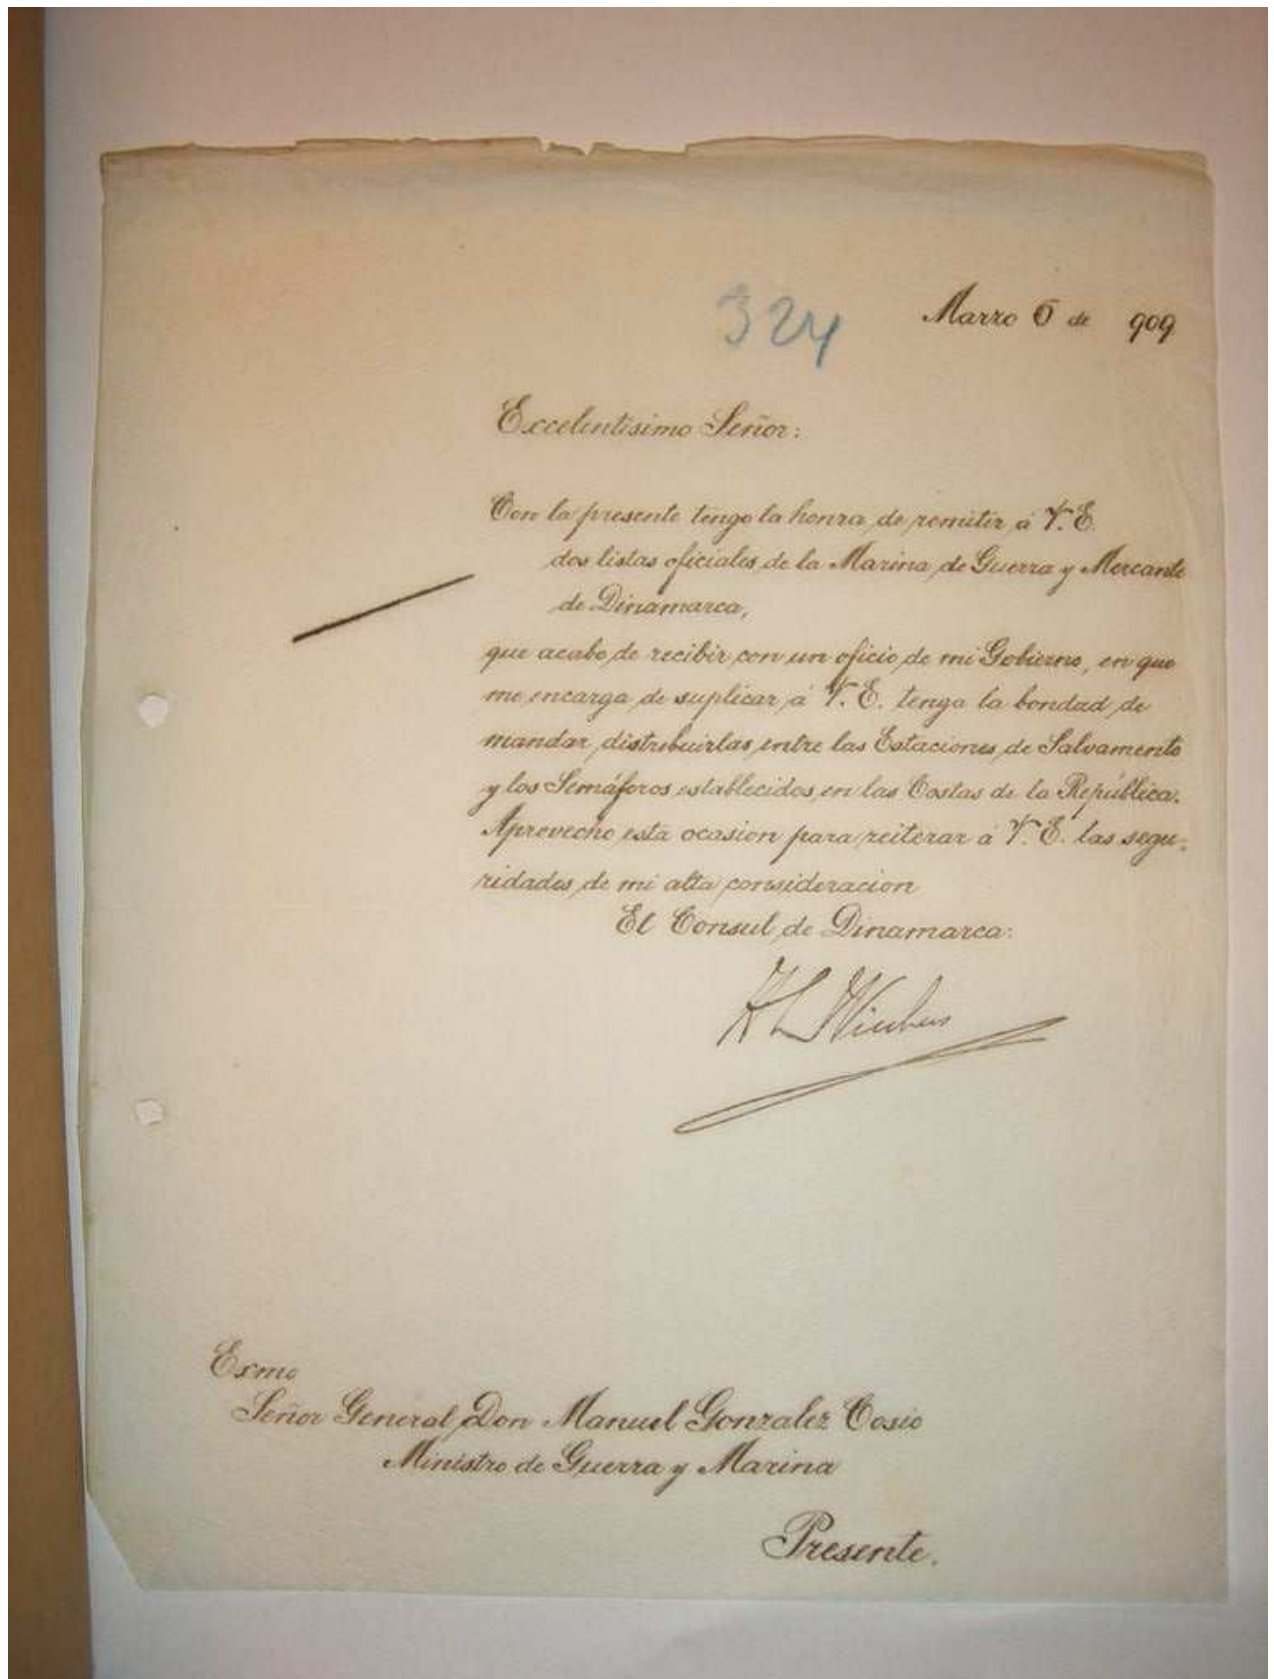 324
Marzo 6 de 909
Excelentísimo Señor:
Con la presente tengo la honra de remitir á V. E.
dos listas oficiales de la Marina de Guerra y Mercante
de Dinamarca,
que acabo de recibir con un oficio de mi Gobierno, en que
me encarga de suplicar á V. E. tenga la bondad de
mandar distribuirlas entre las Estaciones de Salvamento
y los Semáforos establecidos en las Costas de la República.
Aprovecho esta ocasion para reiterar á V. E. las segu-
ridades de mi alta consideracion
El Consul de Dinamarca:
Exmo
Señor General Don Manuel Gonzalez Cosio
Ministro de Guerra y Marina
Presente.